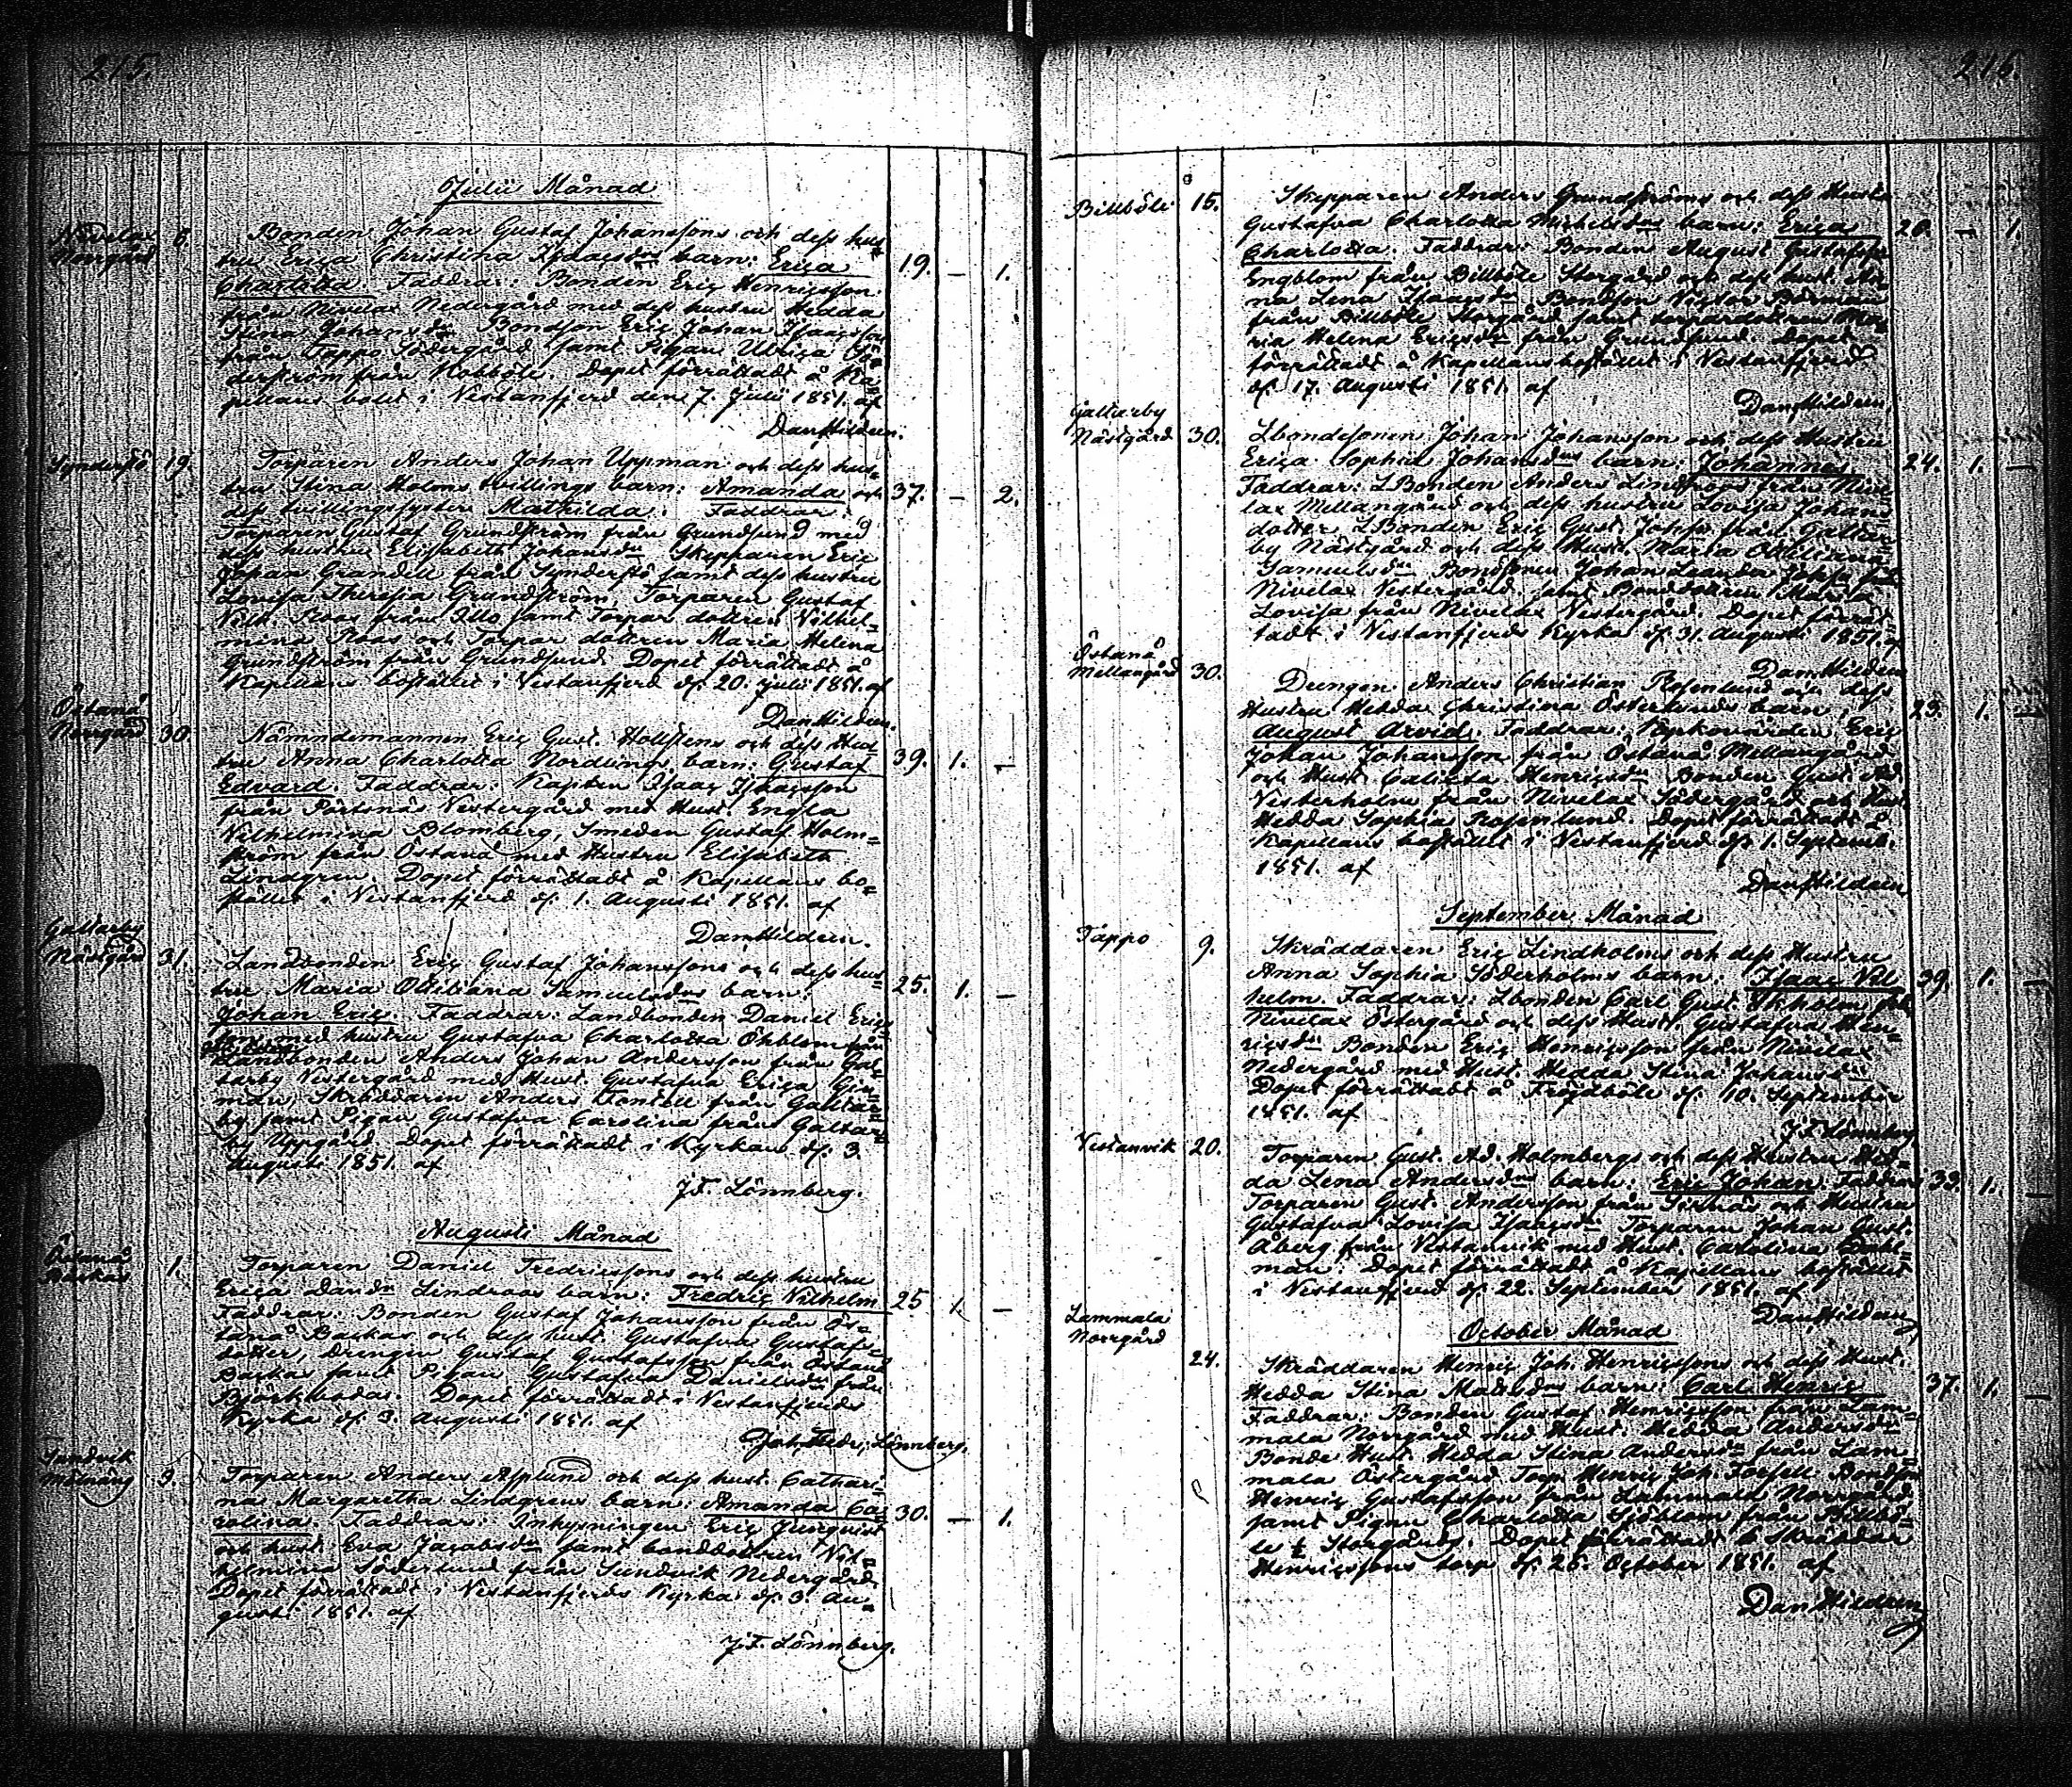 215.
Julii Månad
Nivelax
Norrgård
6.
Bonden Johan Gustaf Johanssons och dess hus=
tru Erica Christina Isaacsdrs barn: Erica
19. — 1.
Charlotta. Faddrar: Bonden Eric Henricsson
från Nivelax Nedergård med dess hustru Hedda
Stina Johansdr Bondson Eric Johan Isaacsson
från Tappo Södergård samt Pigan Ulrica Sö=
derström från Kobböle. Dopet förrättadt å Ka=
pellans bolet i Vestanfjerd den 7. Julii 1851. af
Dan Hildeen.
Synderstö
19.
Torparen Anders Johan Uppman och dess hus=
tru Stina Holms tvillings barn: Amanda och
37. — 2.
dess tvillingssyster Mathilda. Faddrar:
Torparen Gustaf Grundström från Grundsund med
dess hustru Elisabeth Johansdr Skepparen Eric
Johan Grandell från Synderstö samt dess hustru
Lovisa Theresia Grundström, Torparen Gustaf
Vilh. Roos från Illo samt Torpar dottren Vilhel=
mina Roos och Torpar dottren Maria Helena
Grundström från Grundsund. Dopet förrättadt å
Kapellans bostället i Vestanfjerd d. 20. Julii 1851. af
Dan Hildeen.
Östanå
Norrgård
30.
Nämndemannen Eric Gust. Hollstens och dess Hus=
tru Anna Charlotta Nordlings barn: Gustaf
39. 1. —
Edvard. Faddrar: Kapten Isaac Isaacsson
från Pörtsnäs Vestergård med Hust. Engla
Vilhelmina Blomberg, Smeden Gustaf Holm=
ström från Östanå med Hustru Elisabeth
Lindgren. Dopet förrättadt å Kapellans bo=
stället i Vestanfjerd d. 1. Augusti 1851. af
Dan Hildeen.
Galtarby
Nästgård
31.
Landbonden Eric Gustaf Johanssons och dess hus=
tru Maria Ottiliana Samuelsdrs barn:
25. 1. —
Johan Eric. Faddrar: Landbonden Daniel Erics=
son med hustru Gustafva Charlotta Öhblom från
Landbonden Anders Johan Andersson från Gal=
tarby Vestergård med Hust. Gustafva Erica
man, Skräddaren Anders från Galtar=
by samt Pigan Gustafva Carolina från Galtar=
by Uppgård. Dopet förrättadt i Kyrkan d. 3.
Augusti 1851. af
J.F. Lönnberg.
Augusti Månad
Östanå
Backas
1.
Torparen Daniel Fredricssons och dess hustru
Erica Davdr Lindroos barn: Fredric Vilhelm
25 1. —
Faddrar: Bonden Gustaf Johansson från Ös=
tanå Backas och dess hust. Gustafva Gustafs=
dotter, Drengen Gustaf Gustafsson från Östanå
Backas samt Pigan Gustafva Danielsdr från
Björkbodas. Dopet förrättadt i Vestanfjerds
Kyrka d. 3. Augusti 1851. af
Joh. Fredr. Lönnberg.
Sundvik
3.
Torparen Anders Asplund och dess hust. Cathari=
na Margaretha Lindgrens barn: Amanda Ca=
30. — 1.
rolina. Faddrar: Inhysningen Eric Jungqvist
och hust. Eva Jacobsdr samt bonddottren Vil=
helmina Söderlund från Sundvik Nedergård.
Dopet förrättadt i Vestanfjerds Kyrka d. 3. Au=
gusti 1851. af
J.F. Lönnberg.
216.
Billböle
15.
Skepparen Anders Grundströms och dess Hustru
Gustafva Charlotta Michelsdrs barn: Erica
20. — 1.
Charlotta. Faddrar: Bonden August Gustafsson
Engblom från Billböle Storgård och dess hust. An=
na Lena Isaacsdr Bondson Victor
från Billböle Storgård samt Ma=
ria Helena Ericsdr från Grundsund. Dopet
förrättadt å Kapellansbostället i Vestanfjerd
d. 17. Augusti 1851. af
Dan Hildeen.
Galtarby
Nästgård
30.
Lbondesonen Johan Johansson och dess Hustru
Erica Sophia Johansdrs barn: Johannes
24. 1. —
Faddrar: LBonden Anders Lindroos från Nive=
lax Mellangård och dess hustru Lovisa Johans
dotter. LBonden Eric Gust. Johss. från Galtar=
by Nästgård och dess Hust. Maria Ottiliana
Samuelsdr Bondsonen Johan Johss. från
Nivelax Vestergård samt Bonddottren Maria
Lovisa från Nivelax Vestergård. Dopet förrät=
tadt i Vestanfjerds Kyrka d. 31. Augusti 1851. af
Dan Hildeen
Östanå
Mellangård
30.
Drengen Anders Christian Rosenlund och dess
Hustru Hedda Christina Österlunds barn:
23. 1. —
August Arvid. Faddrar: Kyrkovärden Eric
Johan Johansson från Östanå Mellangård
och Hust. Calixta Henricsdr Bonden Gust. Ad.
Vesterholm från Nivelax Södergård och Hust.
Hedda Sophia Rosenlund. Dopet förrättadt å
Kapellans bostället i Vestanfjerd d. 1. Septemb.
1851. af
Dan Hildeen
September Månad
Tappo
9.
Skräddaren Eric Lindholms och dess Hustru
Anna Sophia Söderholms barn: Isaac Vil=
39. 1. —
helm. Faddrar: Lbonden Carl Gust. från
Nivelax Östergård och dess Hust. Gustafva Hen=
ricsdr Bonden Eric Henricsson från Nivelax
Nedergård med Hust. Hedda Stina Johansdr
Dopet förrättadt å Fröjdböle d. 10. September
1851. af
J.F. Lönnberg
Vestanvik
20.
Torparen Gust. Ad. Holmbergs och dess Hustru Hed=
da Lena Andersdrs barn: Eric Johan. Faddrar:
33. 1. —
Torparen Gust. Andersson från och Hustru
Gustafva Lovisa Isaacsdr Torparen Johan Gust.
Åberg från Vestanvik med Hust. Carolina Dahl=
man. Dopet förrättadt å Kapellans bostället
i Vestanfjerd d. 22. September 1851. af
Dan Hildeen
October Månad
Lammala
Norrgård
24.
Skräddaren Henric Joh. Henricssons och dess Hust.
Hedda Stina Matsdrs barn: Carl Henric
37. 1. —
Faddrar: Bonden Gustaf Henricsson från Lam=
mala Norrgård med Hust. Hedda Andersdr
Bonde Hust. Hedda Stina Andersdr från Lam=
mala Östergård Torp. Henric Joh. Forsell Bondson
Henric Gustafsson från Lammala Norrgård
samt Pigan Charlotta Sjöblom från Billbö=
le Storgård. Dopet förrättadt å Skräddar
Henricssons torp d. 26. October 1851. af
Dan Hildeen